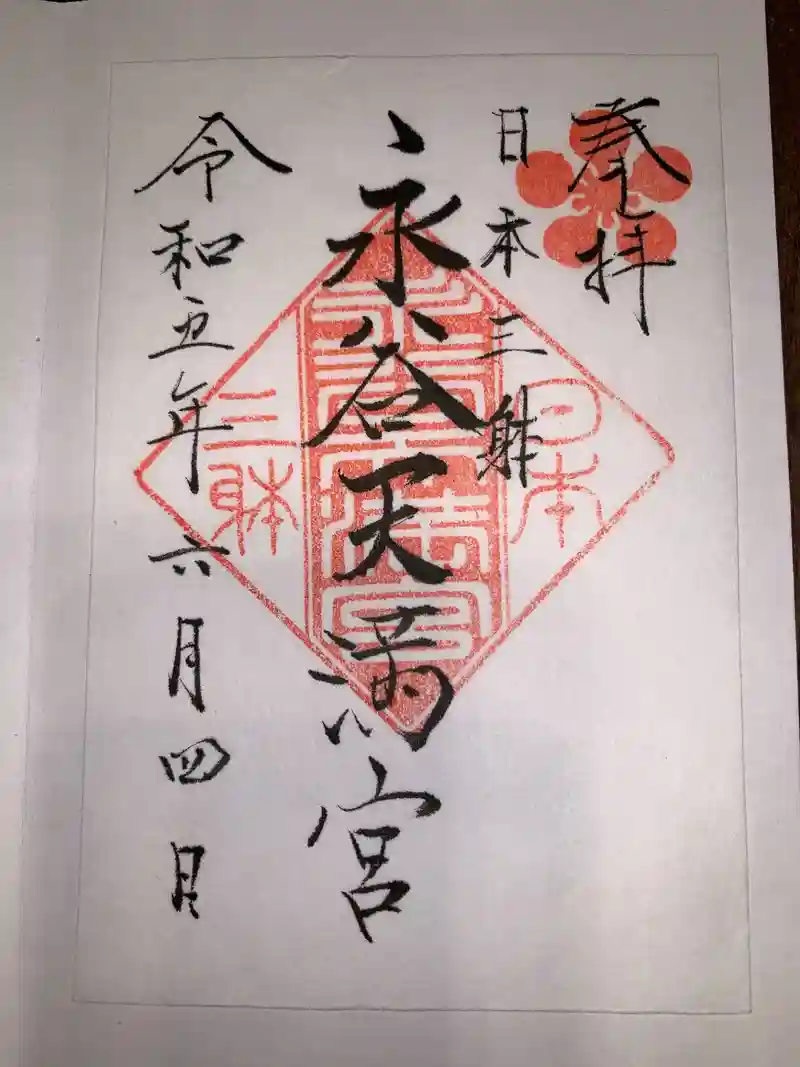 奉拝
日本三躰
永谷天満宮
令和五年六月四日
日本
三躰